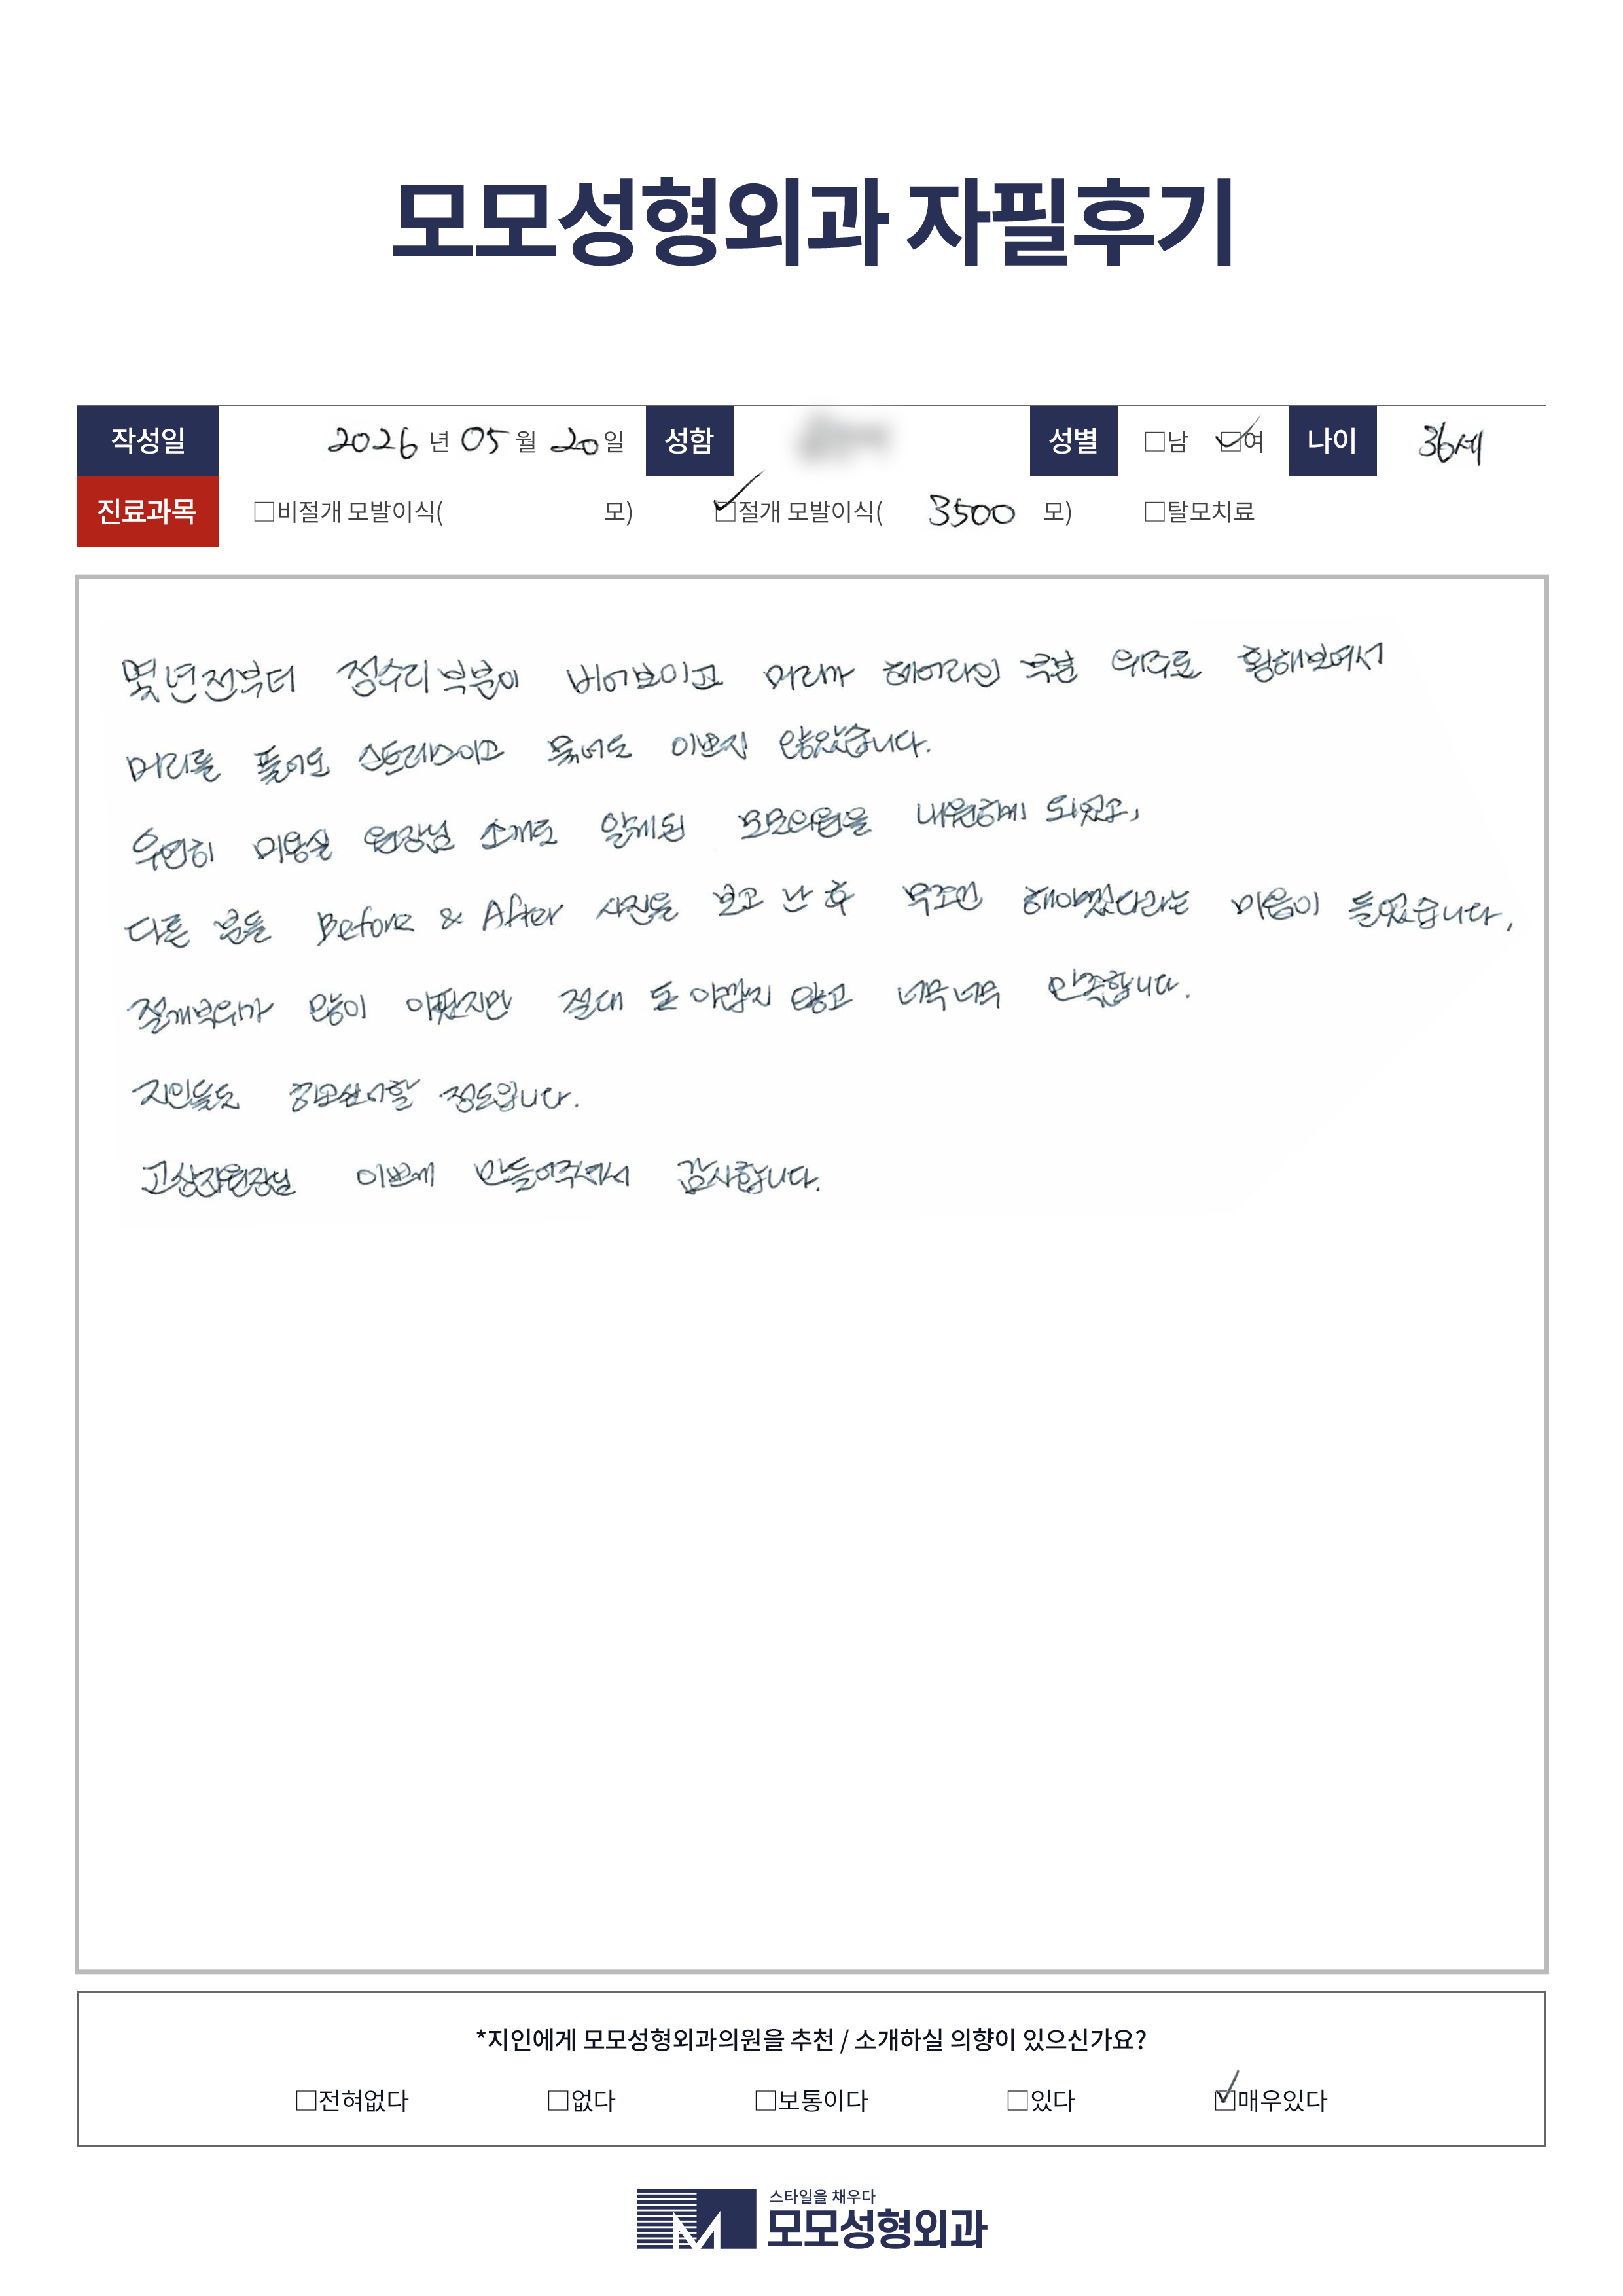 모모성형외과 자필후기
작성일 2026 년 05 월 20 일 성함 성별 □남 ☑여 나이 36세
진료과목 □비절개 모발이식( 모) ☑절개 모발이식( 3500 모) □탈모치료
몇년전부터 정수리부분이 비어보이고 머리가 헤어라인 부분 위주로 휑해보여서
머리를 풀어도 스트레스이고 묶어도 이쁘지 않았습니다.
우연히 미용실 원장님 소개로 알게된 모모의원을 내원하게 되었고,
다른 분들 Before & After 사진들 보고 난 후 무조건 해야겠다라는 마음이 들었습니다,
절개부위가 많이 아팠지만 절대 돈 아깝지 않고 너무너무 만족합니다.
지인들도 하고싶어할 정도입니다.
고상진원장님 이쁘게 만들어주셔서 감사합니다.
*지인에게 모모성형외과의원을 추천 / 소개하실 의향이 있으신가요?
□전혀없다 □없다 □보통이다 □있다 ☑매우있다
스타일을 채우다
모모성형외과